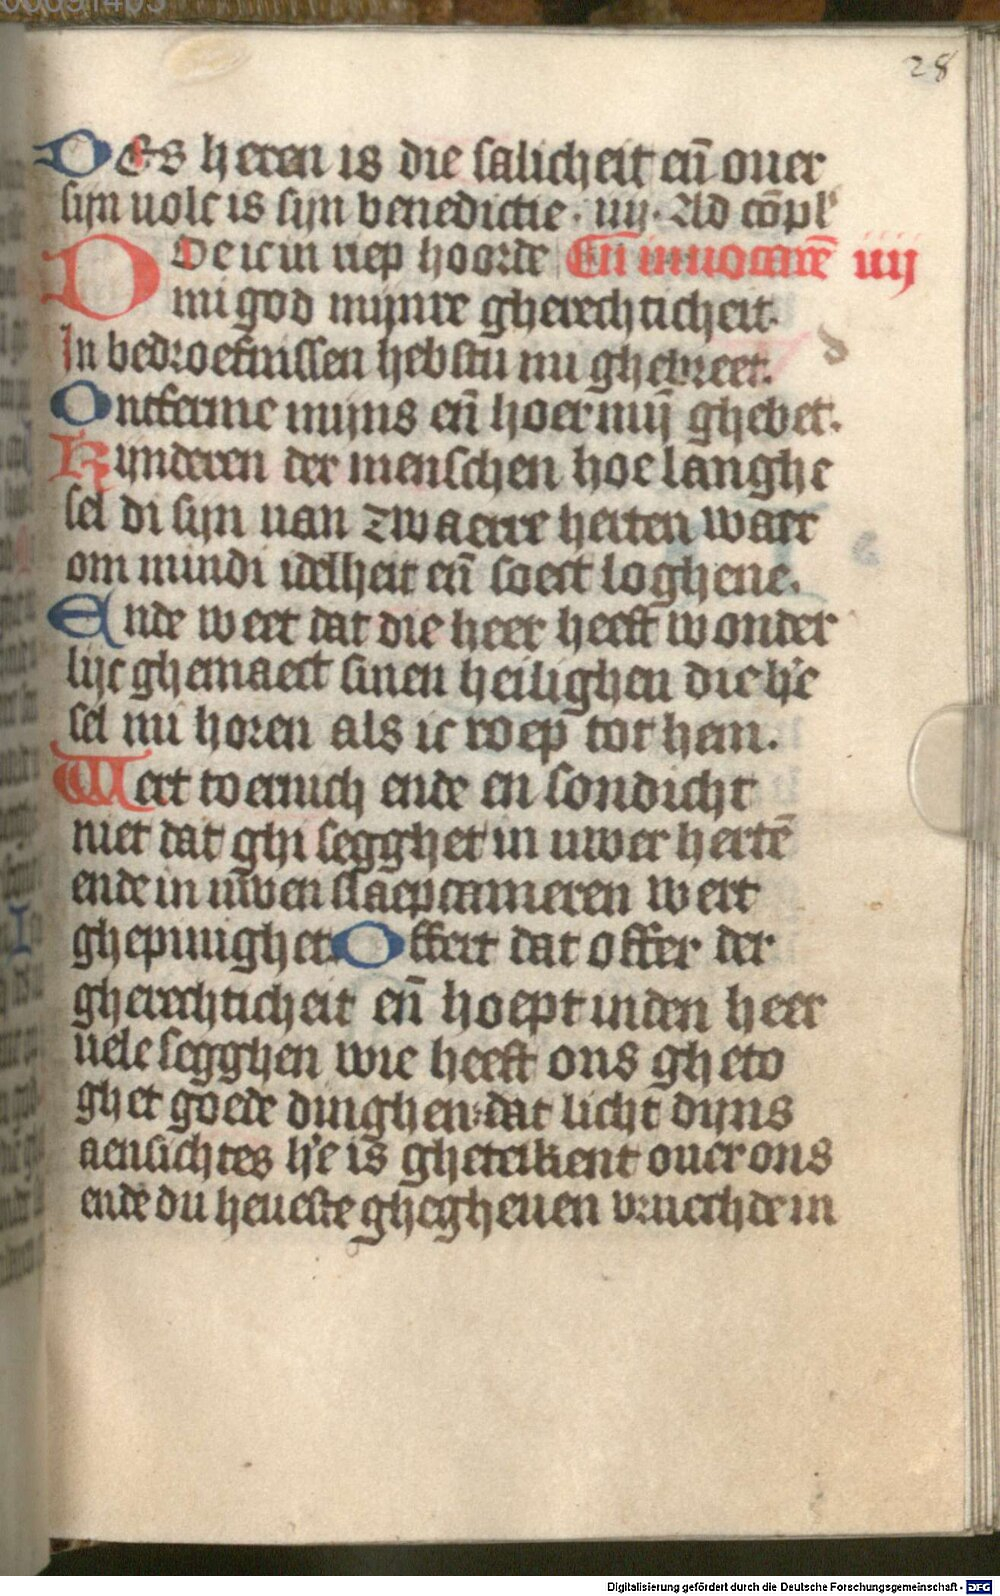 28
Des heren is die salicheit eñ ouer
sijn uolc is sijn benedictie. iiij. Ad cōpl'
Doe ic in riep hoorde Cū inuocarē iiij
mi god mijnre gherechticheit.
In bedroefnissen hebstu mi ghebreet.
Ontferme mijns eñ hoer mijn ghebet.
Kijnderen der menschen hoe langhe
sel di sijn uan zwaerre herten waer
om mindi idelheit eñ soect loghene.
Ende weet dat die heer heeft wonder
lijc ghemaect sinen heilighen die h'e
sel mi horen als ic roep tot hem.
Wert toernich ende en sondicht
niet dat ghi segghet in uwer hertē
ende in uwen slaepcameren wert
ghepinighet. Offert dat offer der
gherechticheit eñ hoept in den heer
uele segghen wie heeft ons gheto
ghet goede dinghen. dat licht dijns
aensichtes h'e is gheteikent ouer ons
ende du heueste ghegheuen vruechde in
Digitalisierung gefördert durch die Deutsche Forschungsgemeinschaft - DFG